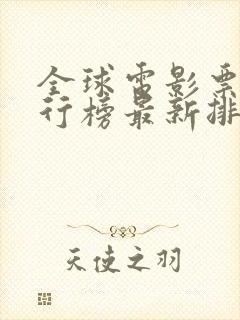 全球电影票
行榜最新排
天使之羽